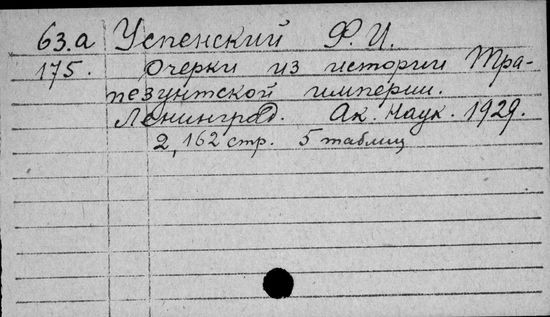 63.а Успенский Ф.И.
175. Очерки из истории Тра-
пезунтской империи.
Ленинград. Ак. Наук. 1929.
2, 162 стр. 5 таблиц